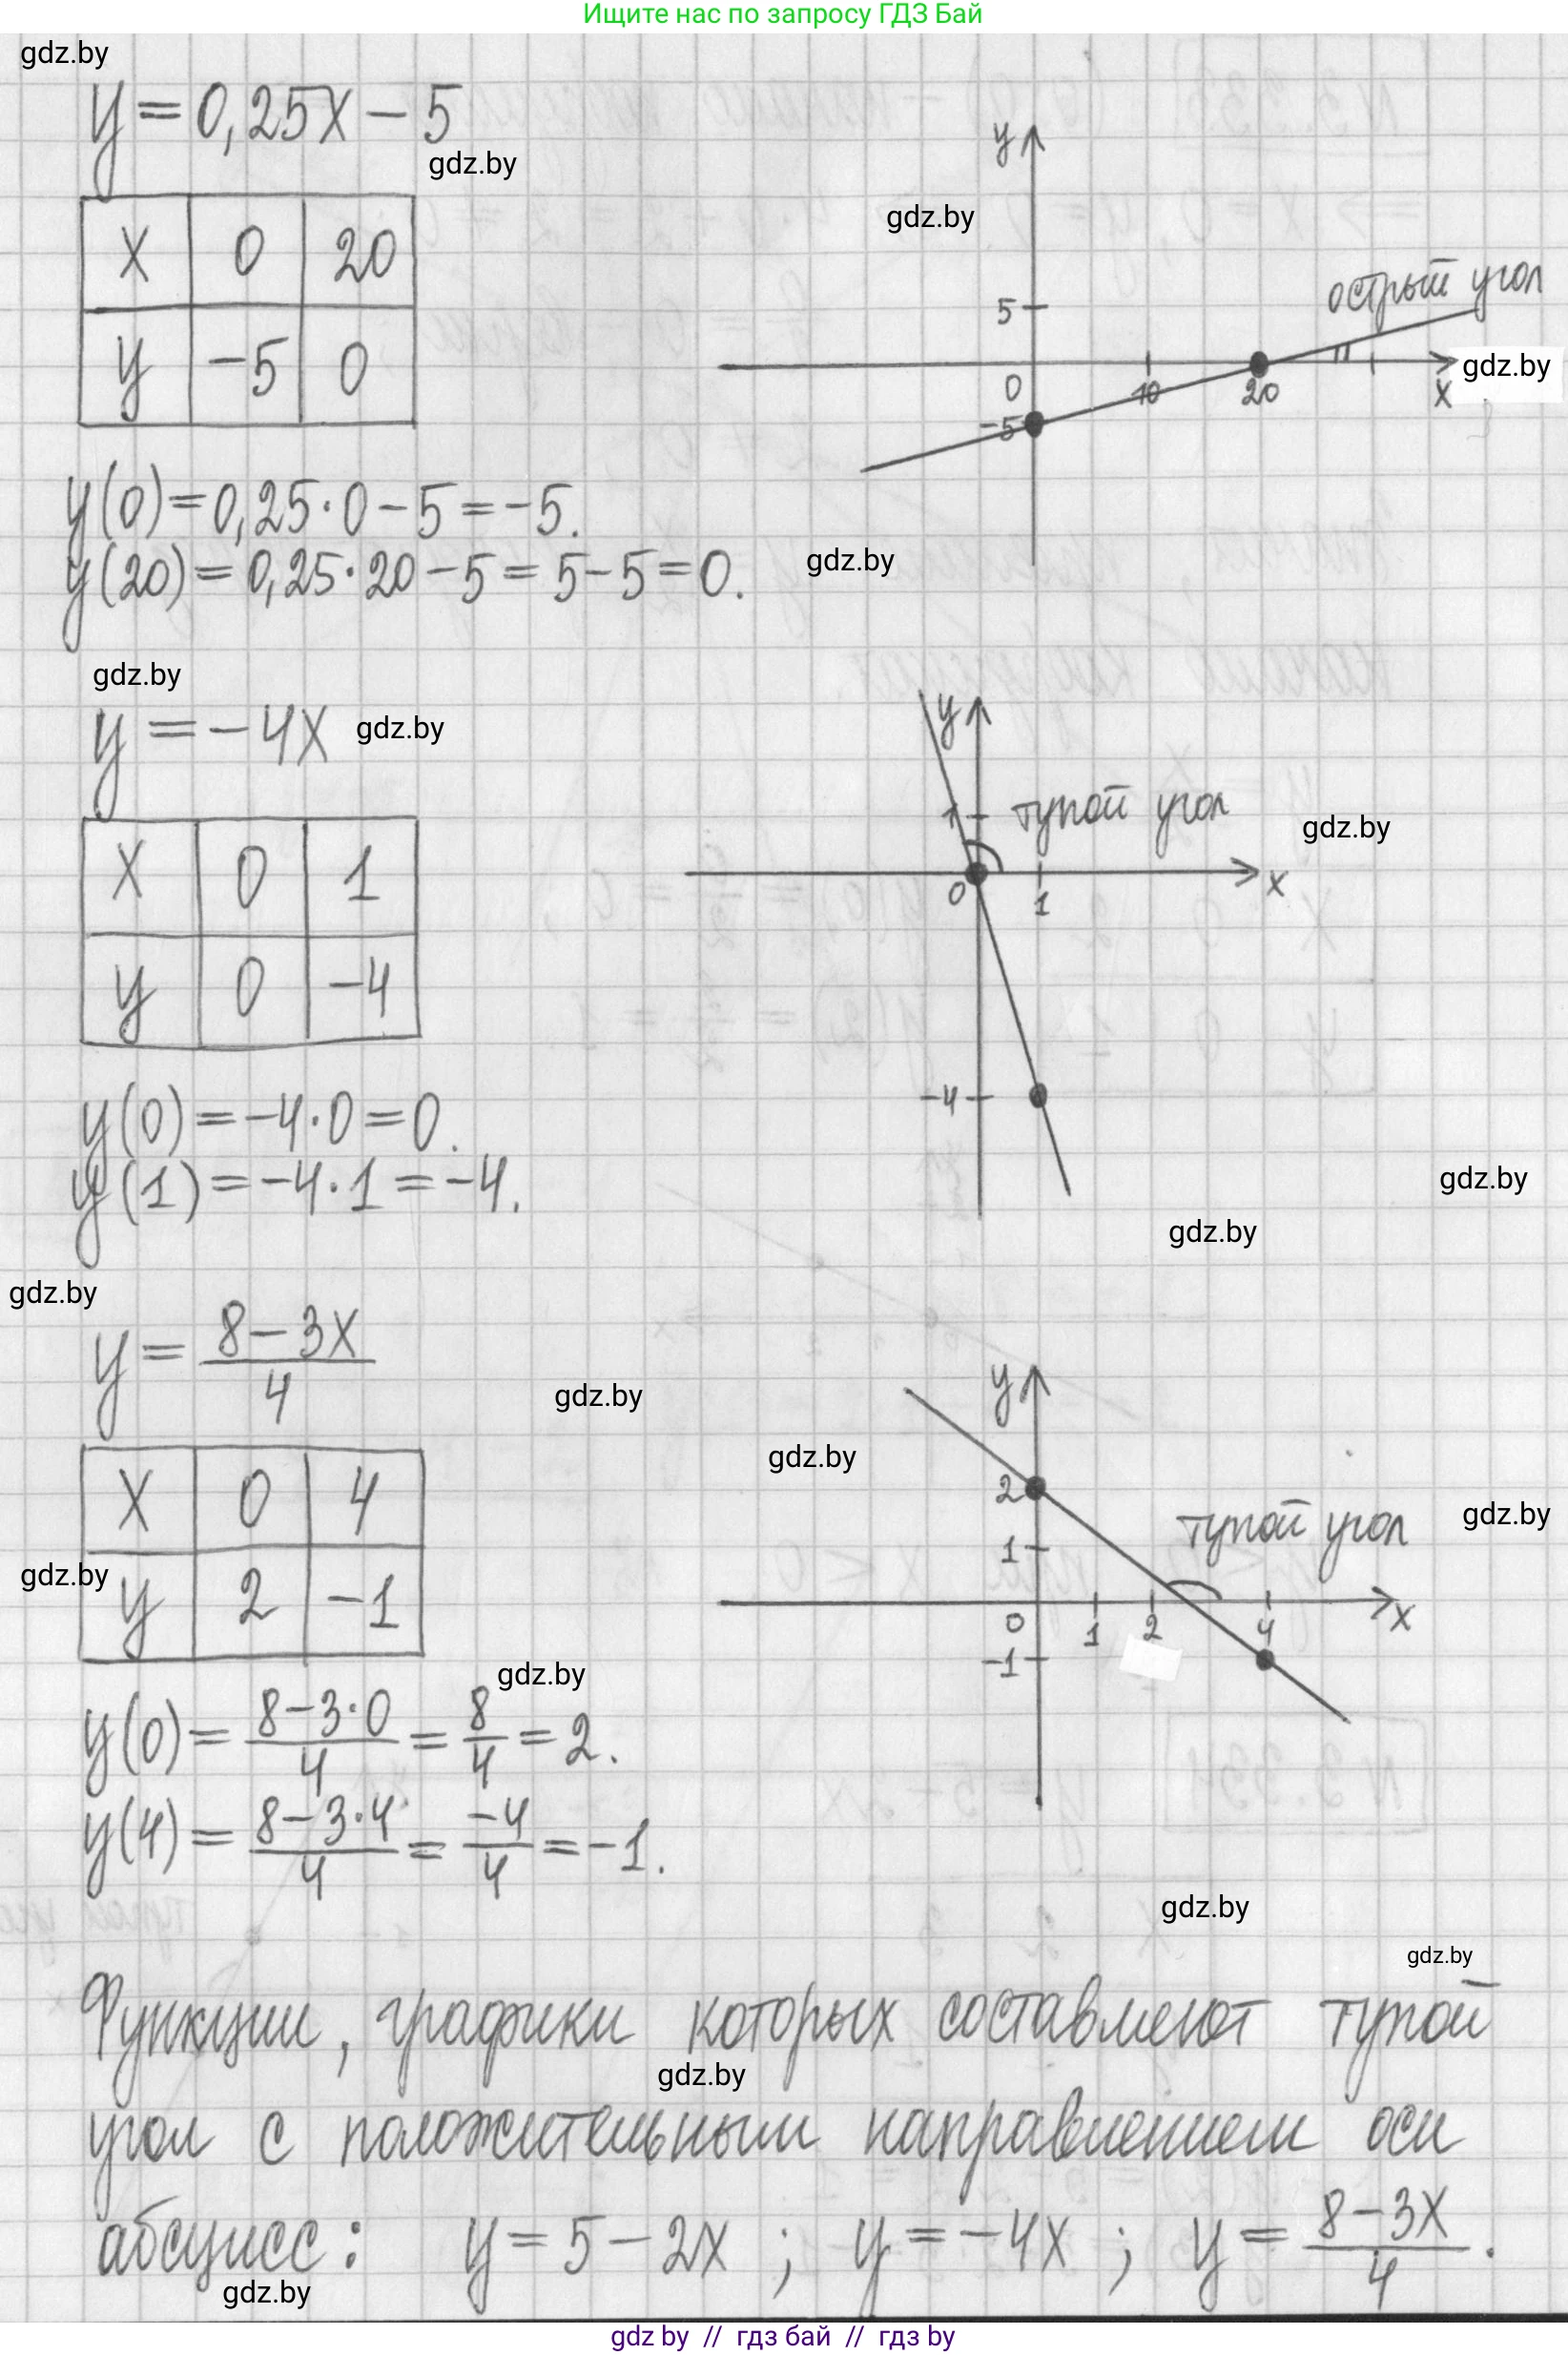 Ищите нас по запросу ГДЗ Бай
gdz.by
y = 0,25x - 5
gdz.by
x 0 20
y -5 0
y
gdz.by
5
острый угол
0 10 20 x
gdz.by
-5
y(0) = 0,25·0 - 5 = -5.
y(20) = 0,25·20 - 5 = 5 - 5 = 0.
gdz.by
gdz.by
y = -4x
gdz.by
x 0 1
y 0 -4
y
1
тупой угол
gdz.by
0 1 x
-4
y(0) = -4·0 = 0.
y(1) = -4·1 = -4.
gdz.by
gdz.by
gdz.by
y = (8 - 3x)/4
gdz.by
x 0 4
gdz.by
y 2 -1
y
gdz.by
2
1
тупой угол
gdz.by
0 1 2 4 x
-1
gdz.by
y(0) = (8 - 3·0)/4 = 8/4 = 2.
y(4) = (8 - 3·4)/4 = -4/4 = -1.
gdz.by
gdz.by
Функции, графики которых составляют тупой
gdz.by
угол с положительным направлением оси
абсцисс: y = 5 - 2x ; y = -4x ; y = (8 - 3x)/4.
gdz.by
gdz by // гдз бай // гдз by